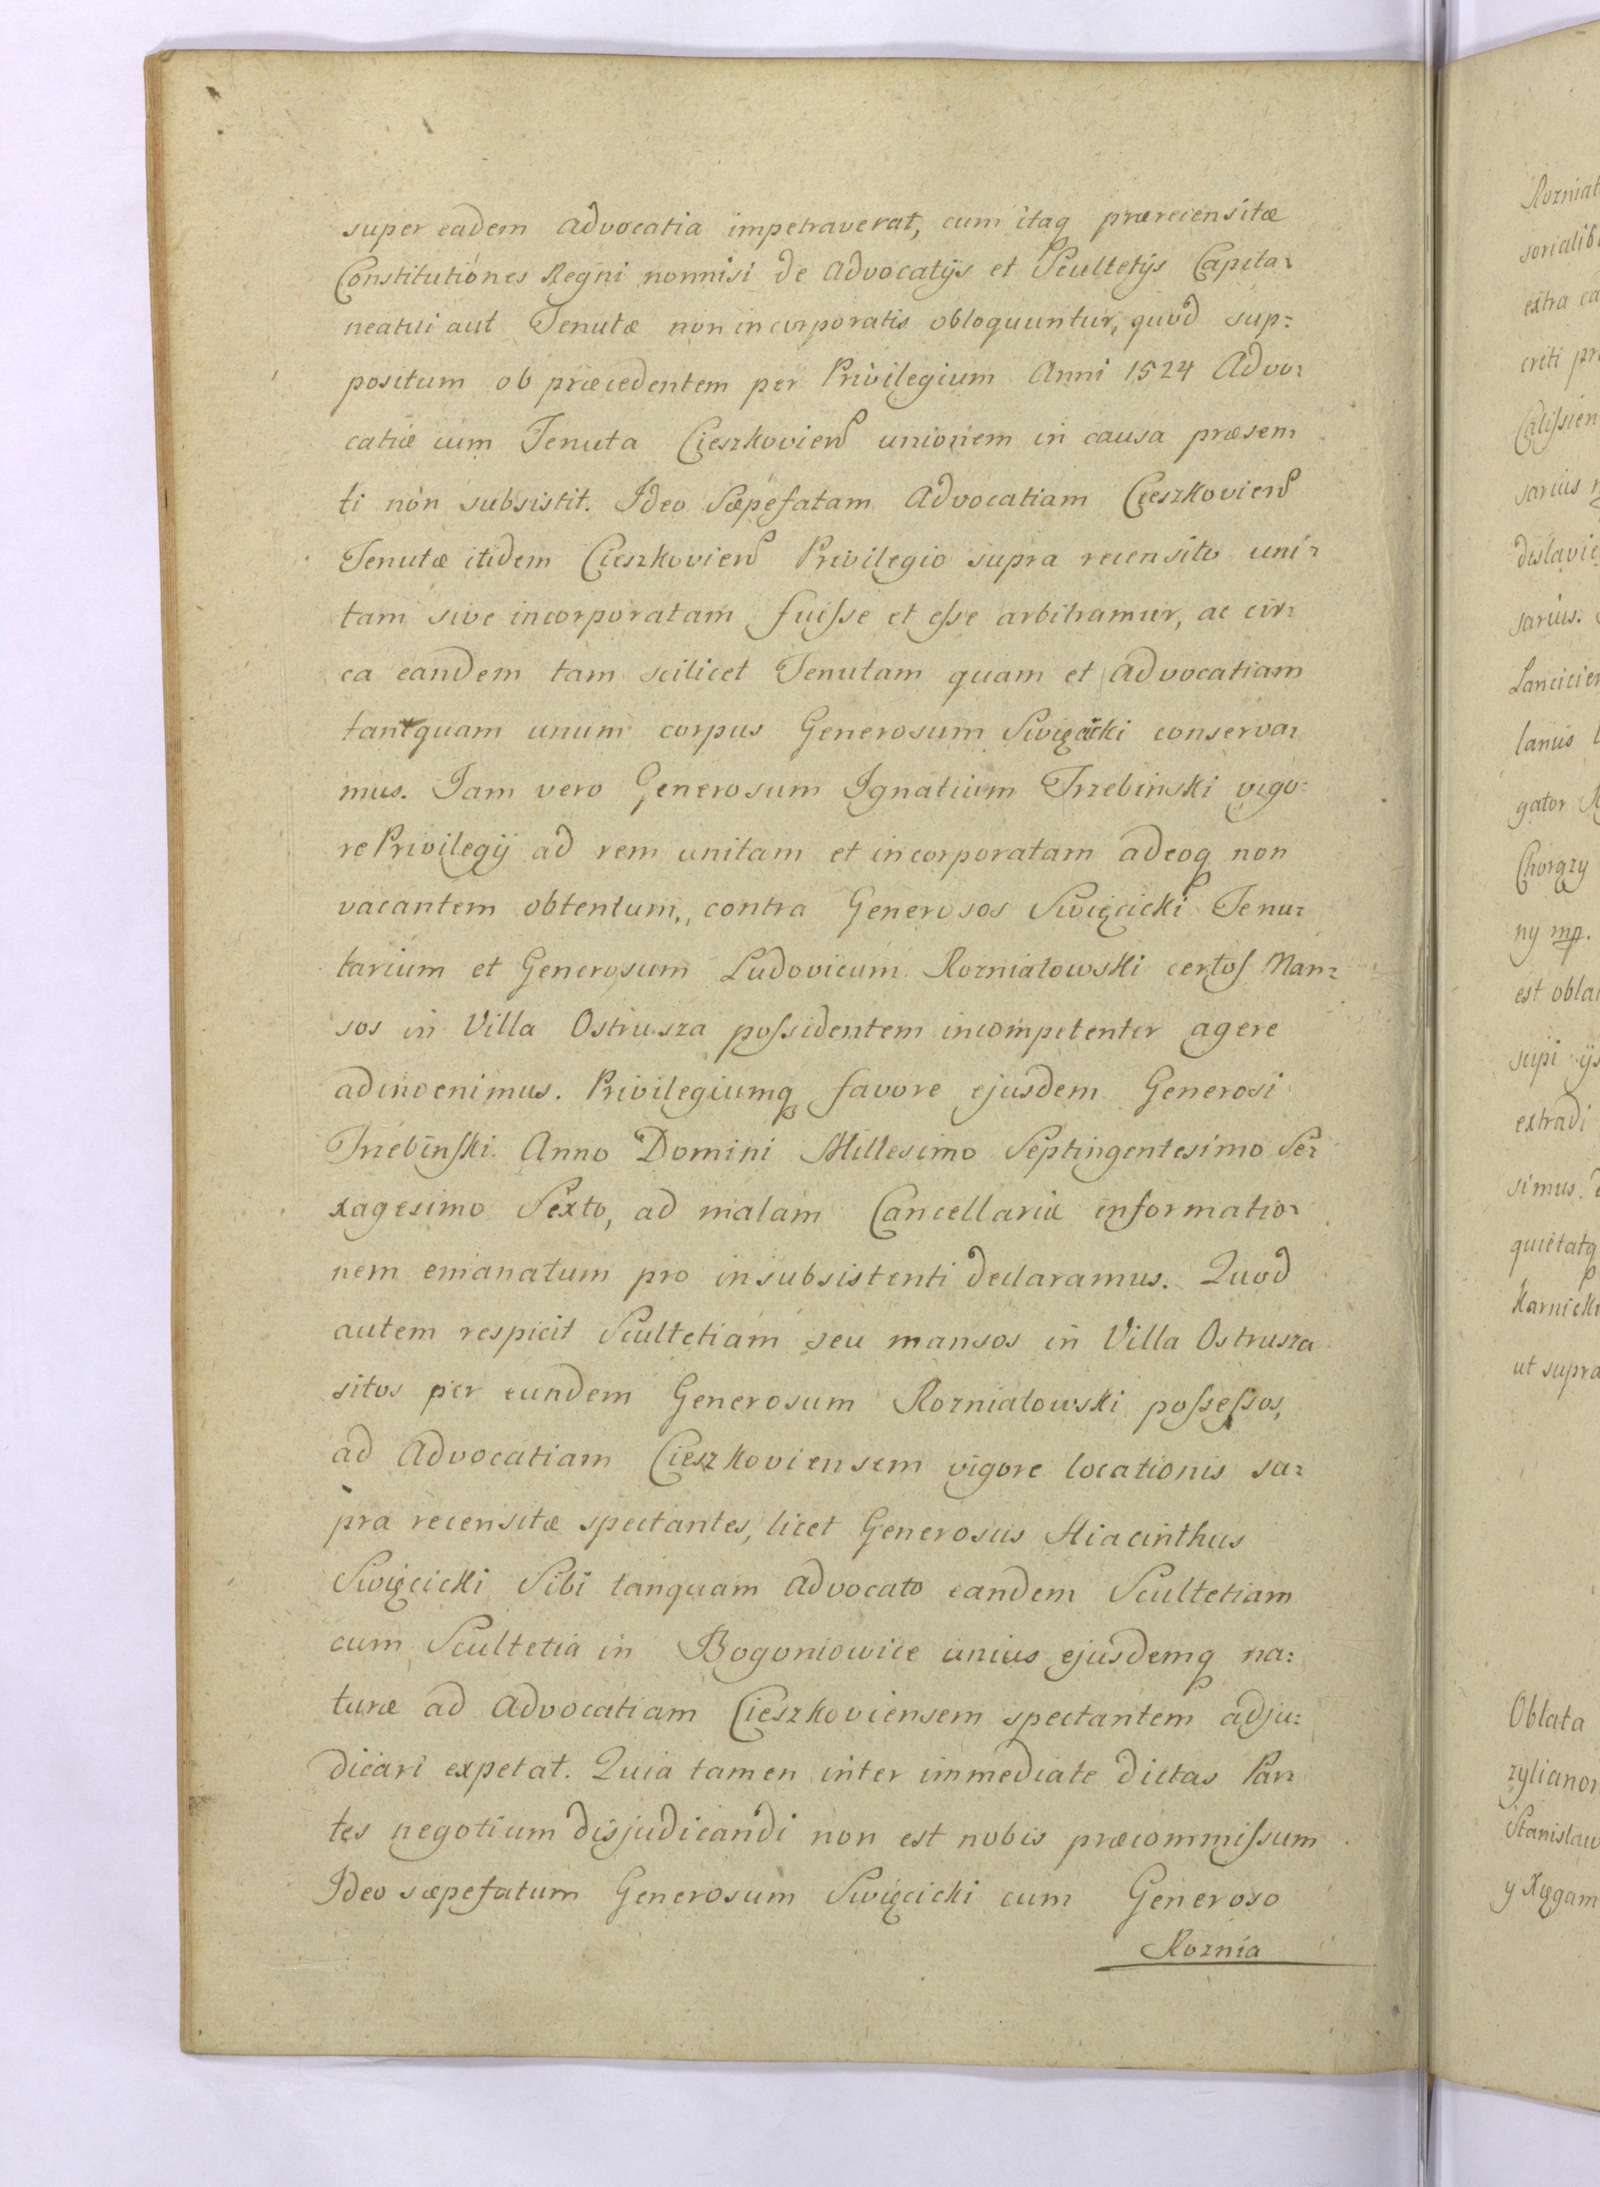 super eadem Advocatia impetraverat, cum itaq prærecensitæ
Constitutiones Regni nonnisi de Advocatijs et Scultetijs Capita=
neatui aut Tenutæ non incorporatis obloquuntur, quod sup=
positum ob præcedentem per Privilegium Anni 1524 Advo=
catiæ cum Tenuta Cieszkovien unionem in causa præsen
ti non subsistit. Ideo Sæpefatam Advocatiam Cieszkovien
Tenutæ itidem Cieszkovien Privilegio supra recensito uni=
tam sive incorporatam fuisse et esse arbitramur, ac cir=
ca eandem tam scilicet Tenutam quam et Advocatiam
tanquam unum corpus Generosum Swięcicki conserva=
mus. Jam vero Generosum Ignatium Trzebinski vigo=
re Privilegij ad rem unitam et incorporatam adeoq non
vacantem obtentum, contra Generosos Swięcicki Tenu=
tarium et Generosum Ludovicum Rozniatowski certos Man=
sos in Villa Ostrusza possidentem incompetenter agere
adinvenimus. Privilegiumq favore ejusdem Generosi
Trzebinski Anno Domini Millesimo Septingentesimo Se=
xagesimo Sexto, ad malam Cancellariæ informatio=
nem emanatum pro insubsistenti declaramus. Quod
autem respicit Scultetiam seu mansos in Villa Ostrusza
sitos per eundem Generosum Rozniatowski possessos,
ad Advocatiam Cieszkoviensem vigore locationis su=
pra recensitæ spectantes, licet Generosus Hiacinthus
Swięcicki Sibi tanquam Advocato eandem Scultetiam
cum Scultetia in Bogoniowice unius ejusdemq na=
turæ ad Advocatiam Cieszkoviensem spectantem adju=
dicari expetat. Quia tamen inter immediate dictas Par=
tes negotium disjudicandi non est nobis præcommissum
Ideo sæpefatum Generosum Swięcicki cum Generoso
Roznia
Rozniat
extra ca
criti pr
Calissien
sarius
sarius.
Lancicien
lanus
gator
Chorąży
ny mp.
est obla
scipi ijs
extradi
simus.
quietatq
Karnicki
ut supra
Oblata
zylianor
Stanislaw
y Xięgam